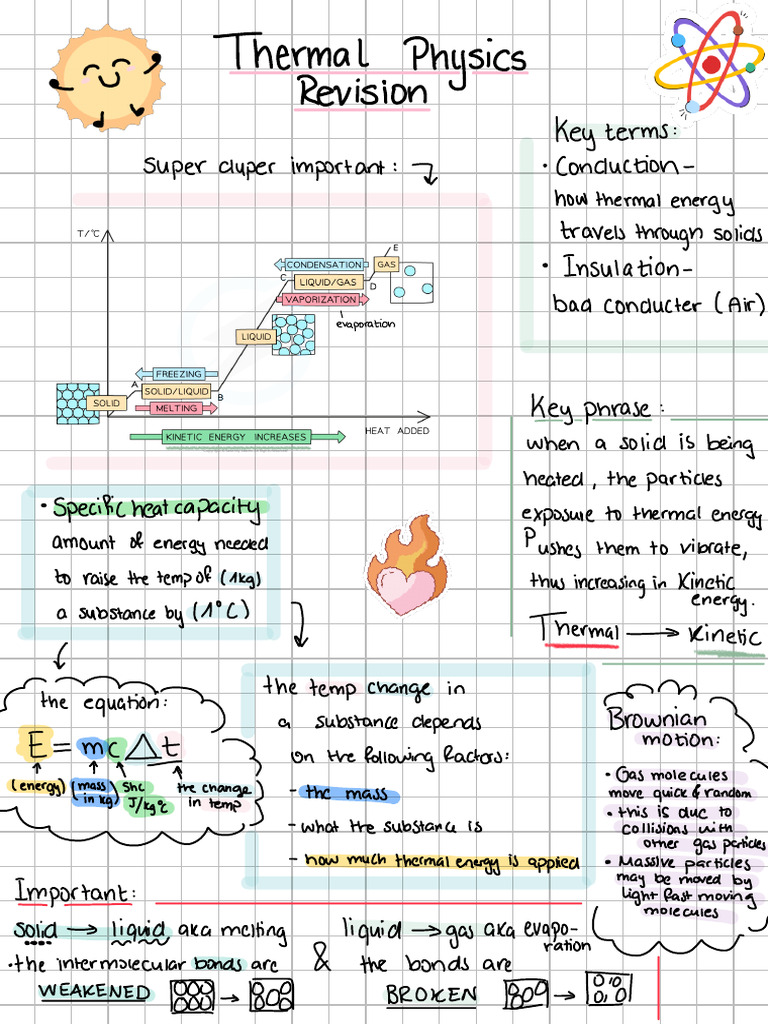 Thermal Physics
Revision
super duper important:
T/°C
CONDENSATION
E
GAS
C
LIQUID/GAS
D
VAPORIZATION
evaporation
LIQUID
FREEZING
A
SOLID/LIQUID
B
SOLID
MELTING
HEAT ADDED
KINETIC ENERGY INCREASES
Key terms:
• Conduction –
how thermal energy
travels through solids
• Insulation –
bad conducter (Air)
Key phrase:
when a solid is being
heated, the particles
exposure to thermal energy
Pushes them to vibrate,
thus increasing in Kinetic
energy.
Thermal → Kinetic
• Specific heat capacity
amount of energy needed
to raise the temp of (1kg)
a substance by (1°C)
the equation:
E = mc△t
(energy)
(mass
in kg)
Shc
J/kg°c
the change
in temp
the temp change in
a substance depends
on the following factors:
- the mass
- what the substance is
- how much thermal energy is applied
Brownian
motion:
• Gas molecules
move quick & random
• this is due to
collisions with
other gas particles
• Massive particles
may be moved by
light fast moving
molecules
Important:
solid → liquid aka melting
• the intermolecular bonds are
WEAKENED →
&
liquid → gas aka evapo-
ration
the bonds are
BROKEN →